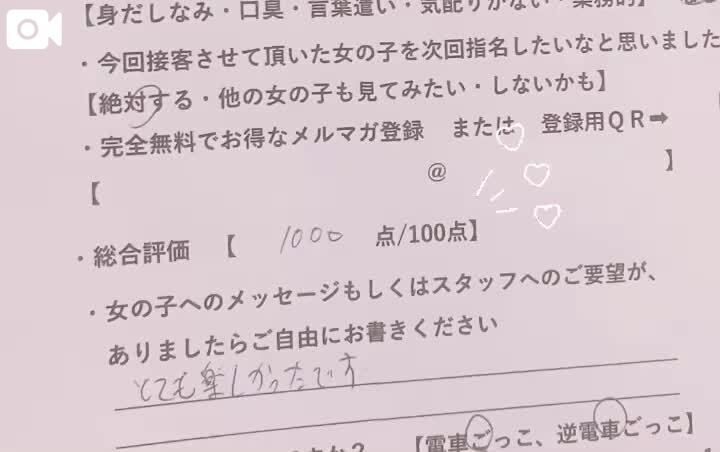 【身だしなみ・口臭・言葉遣い・気配りがない・業務的】
・今回接客させて頂いた女の子を次回指名したいなと思いました
【絶対する・他の女の子も見てみたい・しないかも】
・完全無料でお得なメルマガ登録 または 登録用QR➡
【 @ 】
・総合評価 【 1000 点/100点】
・女の子へのメッセージもしくはスタッフへのご要望が、
ありましたらご自由にお書きください
とても楽しかったです
【電車ごっこ、逆電車ごっこ】